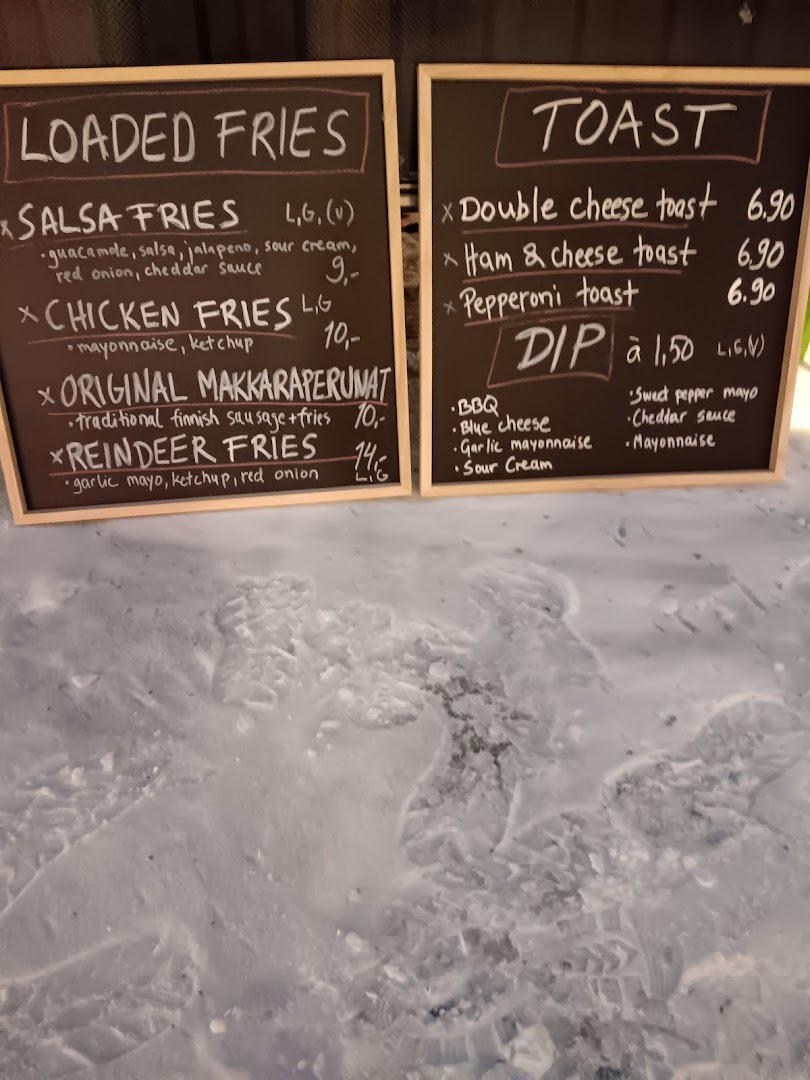 LOADED FRIES
x SALSA FRIES L,G,(v)
• guacamole, salsa, jalapeno, sour cream,
red onion, cheddar sauce 9,-
x CHICKEN FRIES L,G
• mayonnaise, ketchup 10,-
x ORIGINAL MAKKARAPERUNAT
• traditional finnish sausage + fries 10,-
x REINDEER FRIES 14,-
• garlic mayo, ketchup, red onion L,G
TOAST
x Double cheese toast 6.90
x Ham & cheese toast 6.90
x Pepperoni toast 6.90
DIP à 1,50 L,G,(V)
• BBQ
• Blue cheese
• Garlic mayonnaise
• Sour Cream
• Sweet pepper mayo
• Cheddar sauce
• Mayonnaise